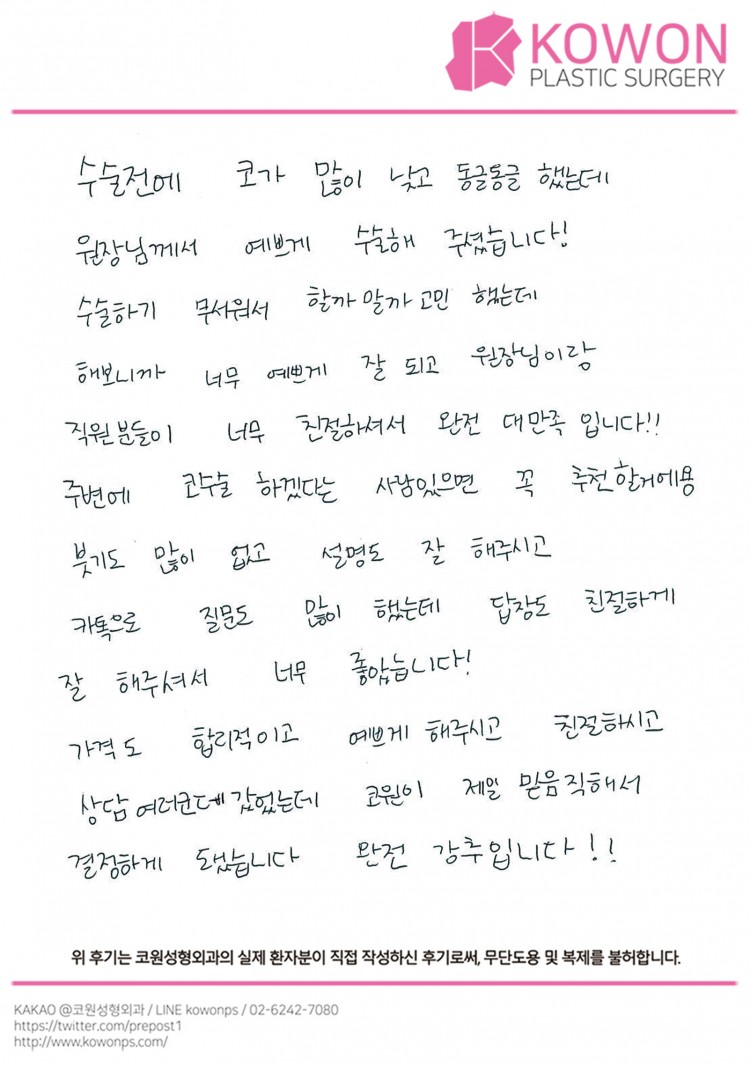 KOWON
PLASTIC SURGERY
수술전에 코가 많이 낮고 동글동글 했는데
원장님께서 예쁘게 수술해 주셨습니다!
수술하기 무서워서 할까 말까 고민 했는데
해보니까 너무 예쁘게 잘 되고 원장님이랑
직원분들이 너무 친절하셔서 완전 대만족 입니다!!
주변에 코수술 하겠다는 사람있으면 꼭 추천할거에용
붓기도 많이 없고 설명도 잘 해주시고
카톡으로 질문도 많이 했는데 답장도 친절하게
잘 해주셔서 너무 좋았습니다!
가격도 합리적이고 예쁘게 해주시고 친절하시고
상담 여러군데 갔었는데 코원이 제일 믿음직해서
결정하게 됐습니다 완전 강추입니다!!
위 후기는 코원성형외과의 실제 환자분이 직접 작성하신 후기로써, 무단도용 및 복제를 불허합니다.
KAKAO @코원성형외과 / LINE kowonps / 02-6242-7080
https://twitter.com/prepost1
http://www.kowonps.com/